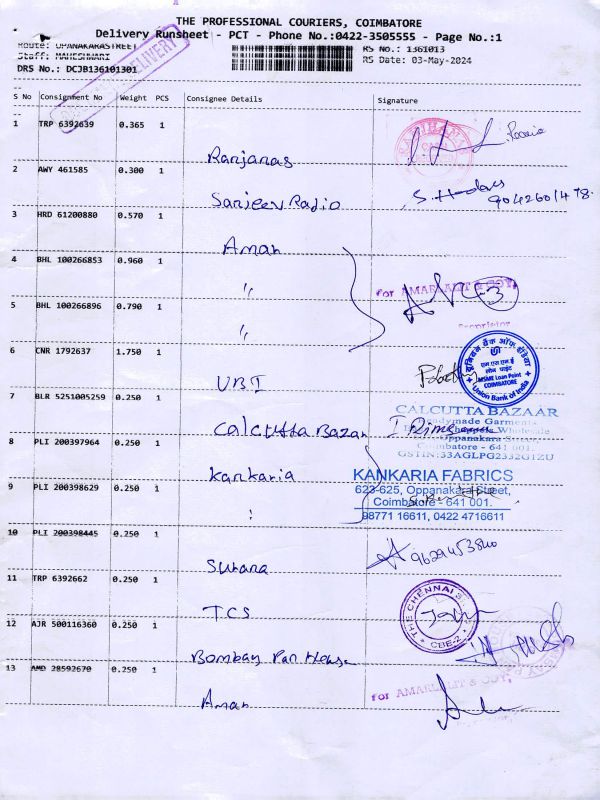 THE PROFESSIONAL COURIERS, COIMBATORE
Delivery Runsheet - PCT - Phone No.:0422-3505555 - Page No.:1
Route: OPANAKARASTREET
RS No.: 1361013
Staff: MAHESHWARI
RS Date: 03-May-2024
DRS No.: DCJB136101301
DELIVERY
S No Consignment No Weight PCS Consignee Details Signature
1 TRP 6392639 0.365 1
Ranjanas
2 AWY 461585 0.300 1
Sanjeev Radio
9042601478.
3 HRD 61200880 0.570 1
Aman
4 BHL 100266853 0.960 1
"
for AMARLALIT & COY,
3
5 BHL 100266896 0.790 1
"
Proprietor
6 CNR 1792637 1.750 1
UBI
यूनियन बैंक ऑफ इंडिया
एम एस एम ई
लोन पाइंट
MSME Loan Point
COIMBATORE
Union Bank of India
7 BLR 5251005259 0.250 1
Calcutta Bazar
CALCUTTA BAZAAR
Oppanakara Street
Coimbatore - 641 001.
GSTIN:33AGLPG2332G1ZU
8 PLI 200397964 0.250 1
Kankaria
KANKARIA FABRICS
623-625, Oppanakara Street,
Coimbatore - 641 001.
98771 16611, 0422 4716611
9 PLI 200398629 0.250 1
10 PLI 200398445 0.250 1
Suhana
9629453840
11 TRP 6392662 0.250 1
TCS
THE CHENNAI S
CBE-2
12 AJR 500116360 0.250 1
Bombay Pan House
13 AMD 28592670 0.250 1
Aman
for AMARLALIT & COY,